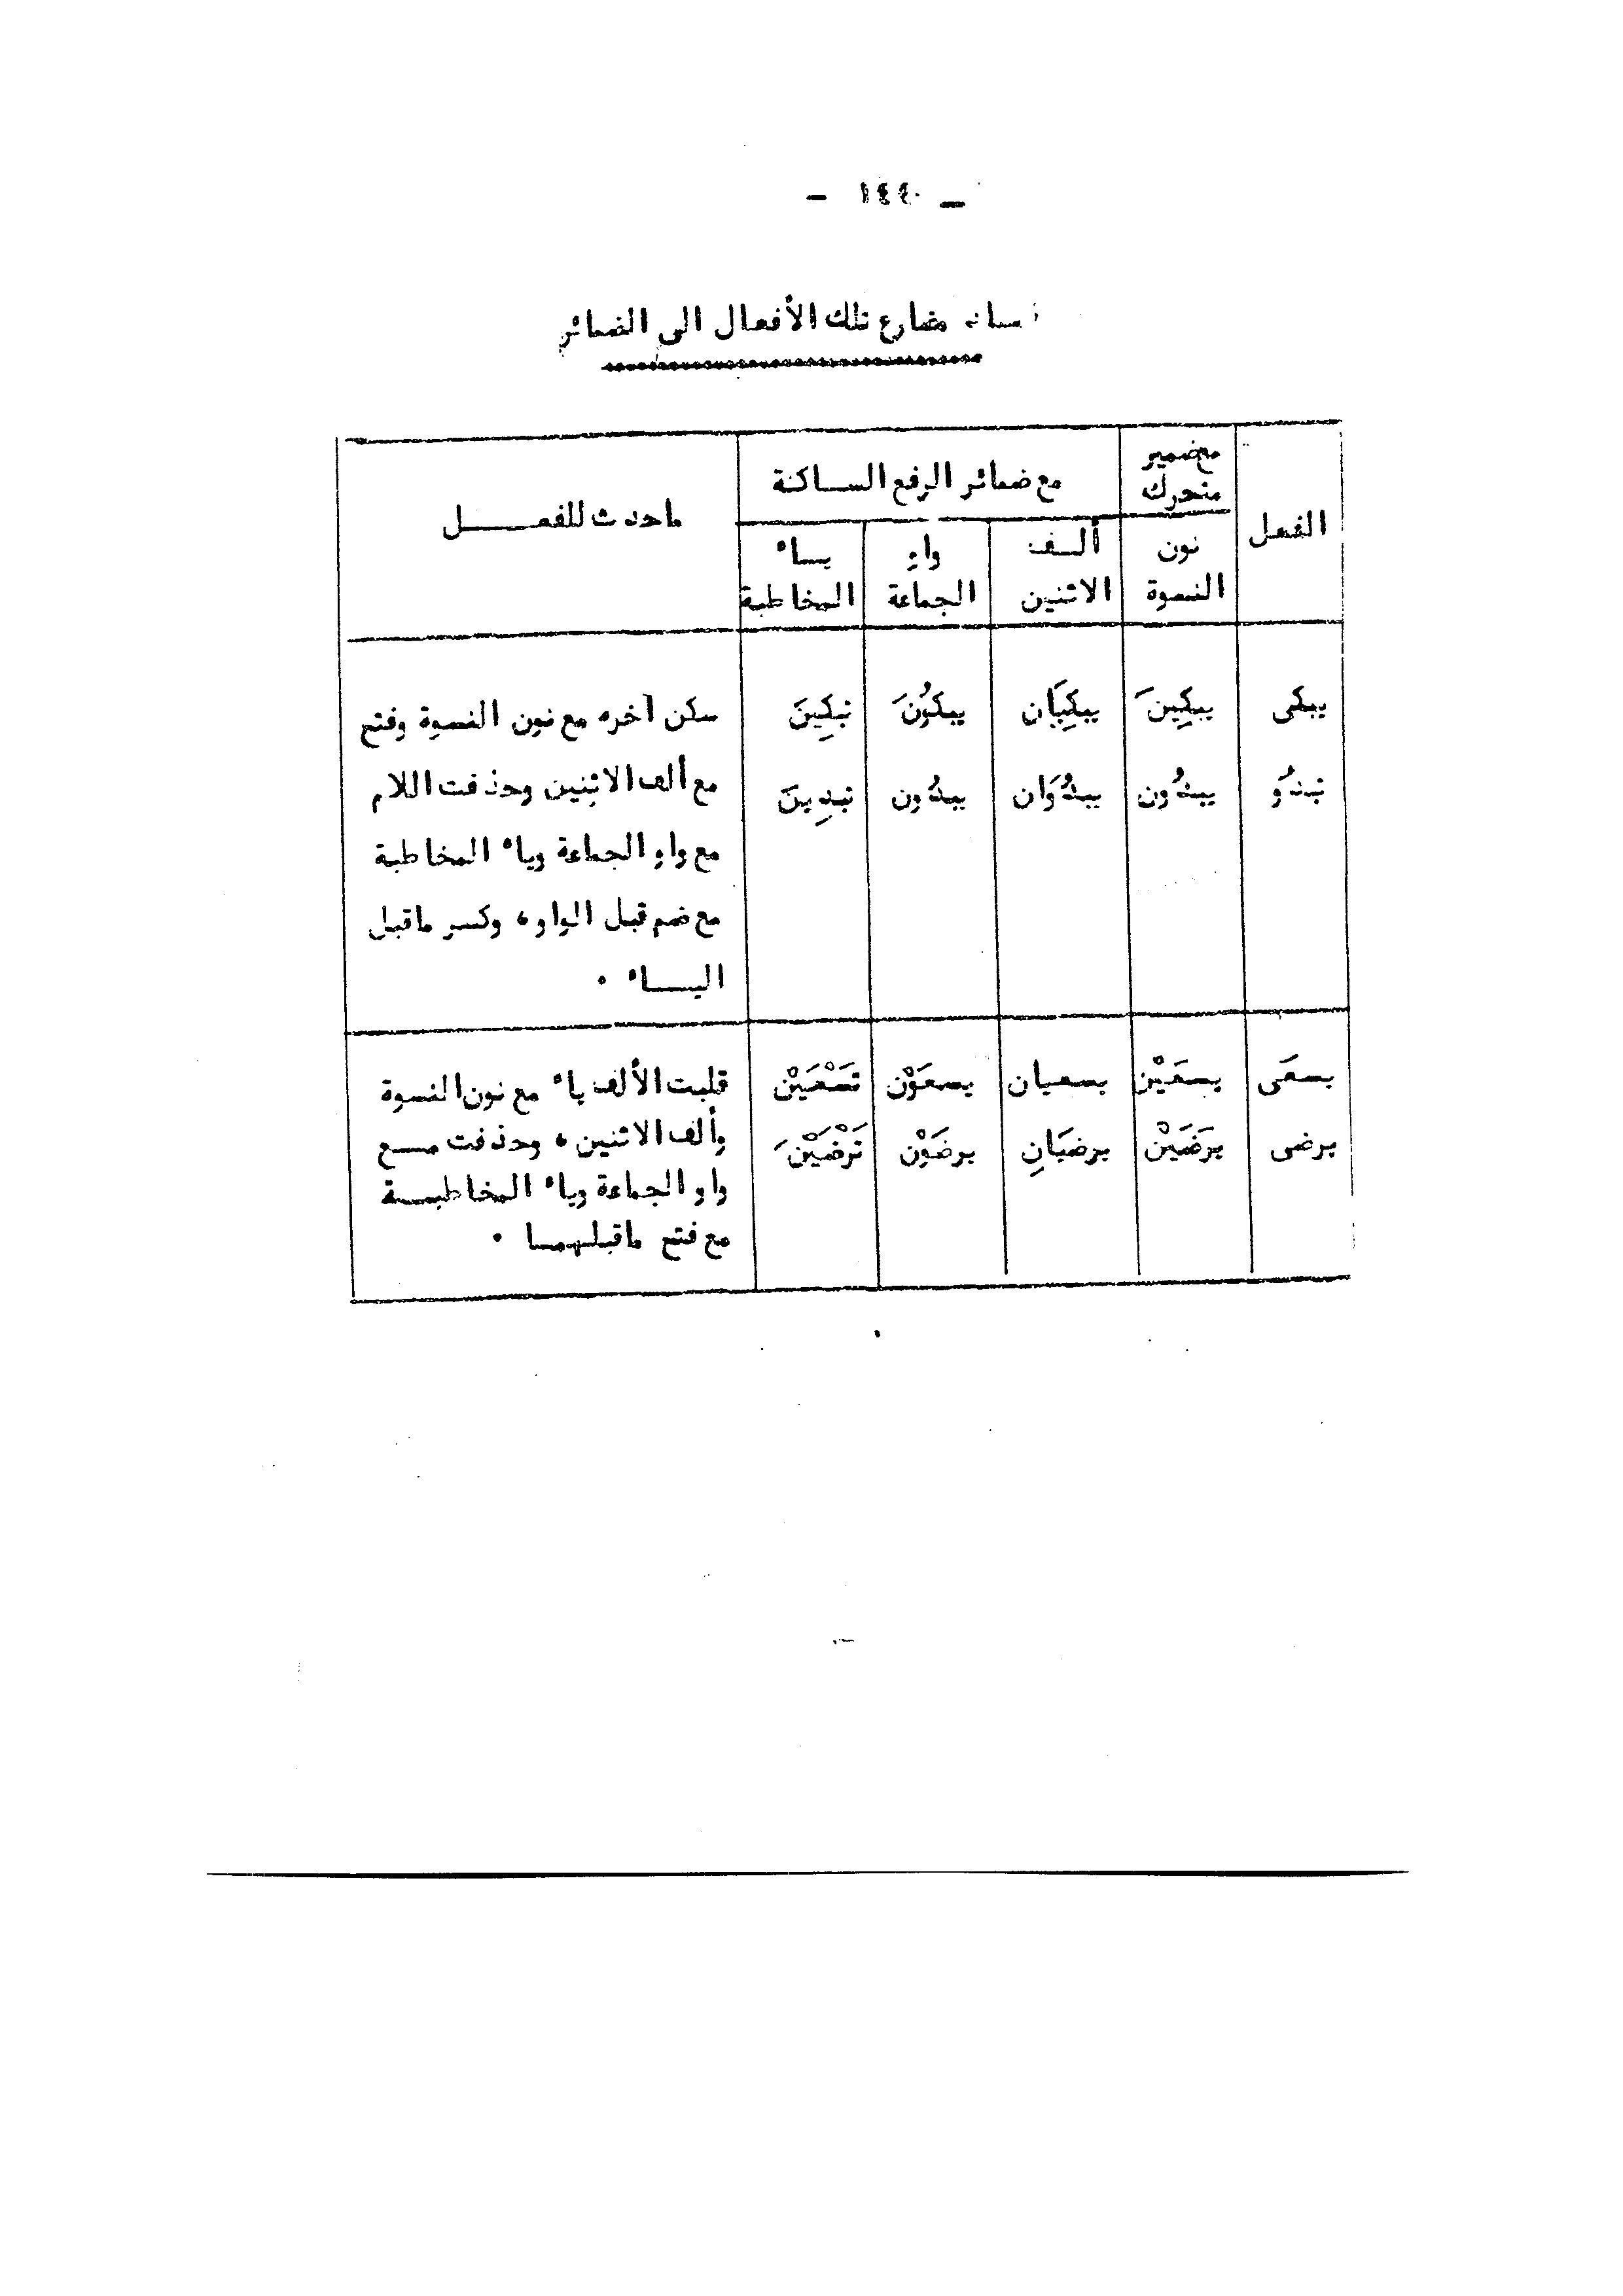 مضارع تلك الأفعال الى الضمائر
الفعل
مع ضمير
متحرك
مع ضمائر الرفع الساكنة
ماحدث للفعل
نون
النسوة
ألف
الاثنين
واو
الجماعة
ياء
المخاطبة
يبكى يبكِينَ يبكِيَان يبكُونَ تبكِينَ
تبدُو يبدُون يبدُوَان يبدُون تبدِينَ
سكن آخره مع نون النسوة وفتح
مع ألف الاثنين وحذفت اللام
مع واو الجماعة وياء المخاطبة
مع ضم قبل الواو، وكسر ماقبل
الياء .
يسعَى يسعَيْن يسعيان يسعَوْن تَسْعَيْن
يرضى يرضَيْن يرضَيَانِ يرضَوْن تَرْضَيْنَ
قلبت الألف ياء مع نون النسوة
وألف الاثنين، وحذفت مع
واو الجماعة وياء المخاطبة
مع فتح ماقبلهما .